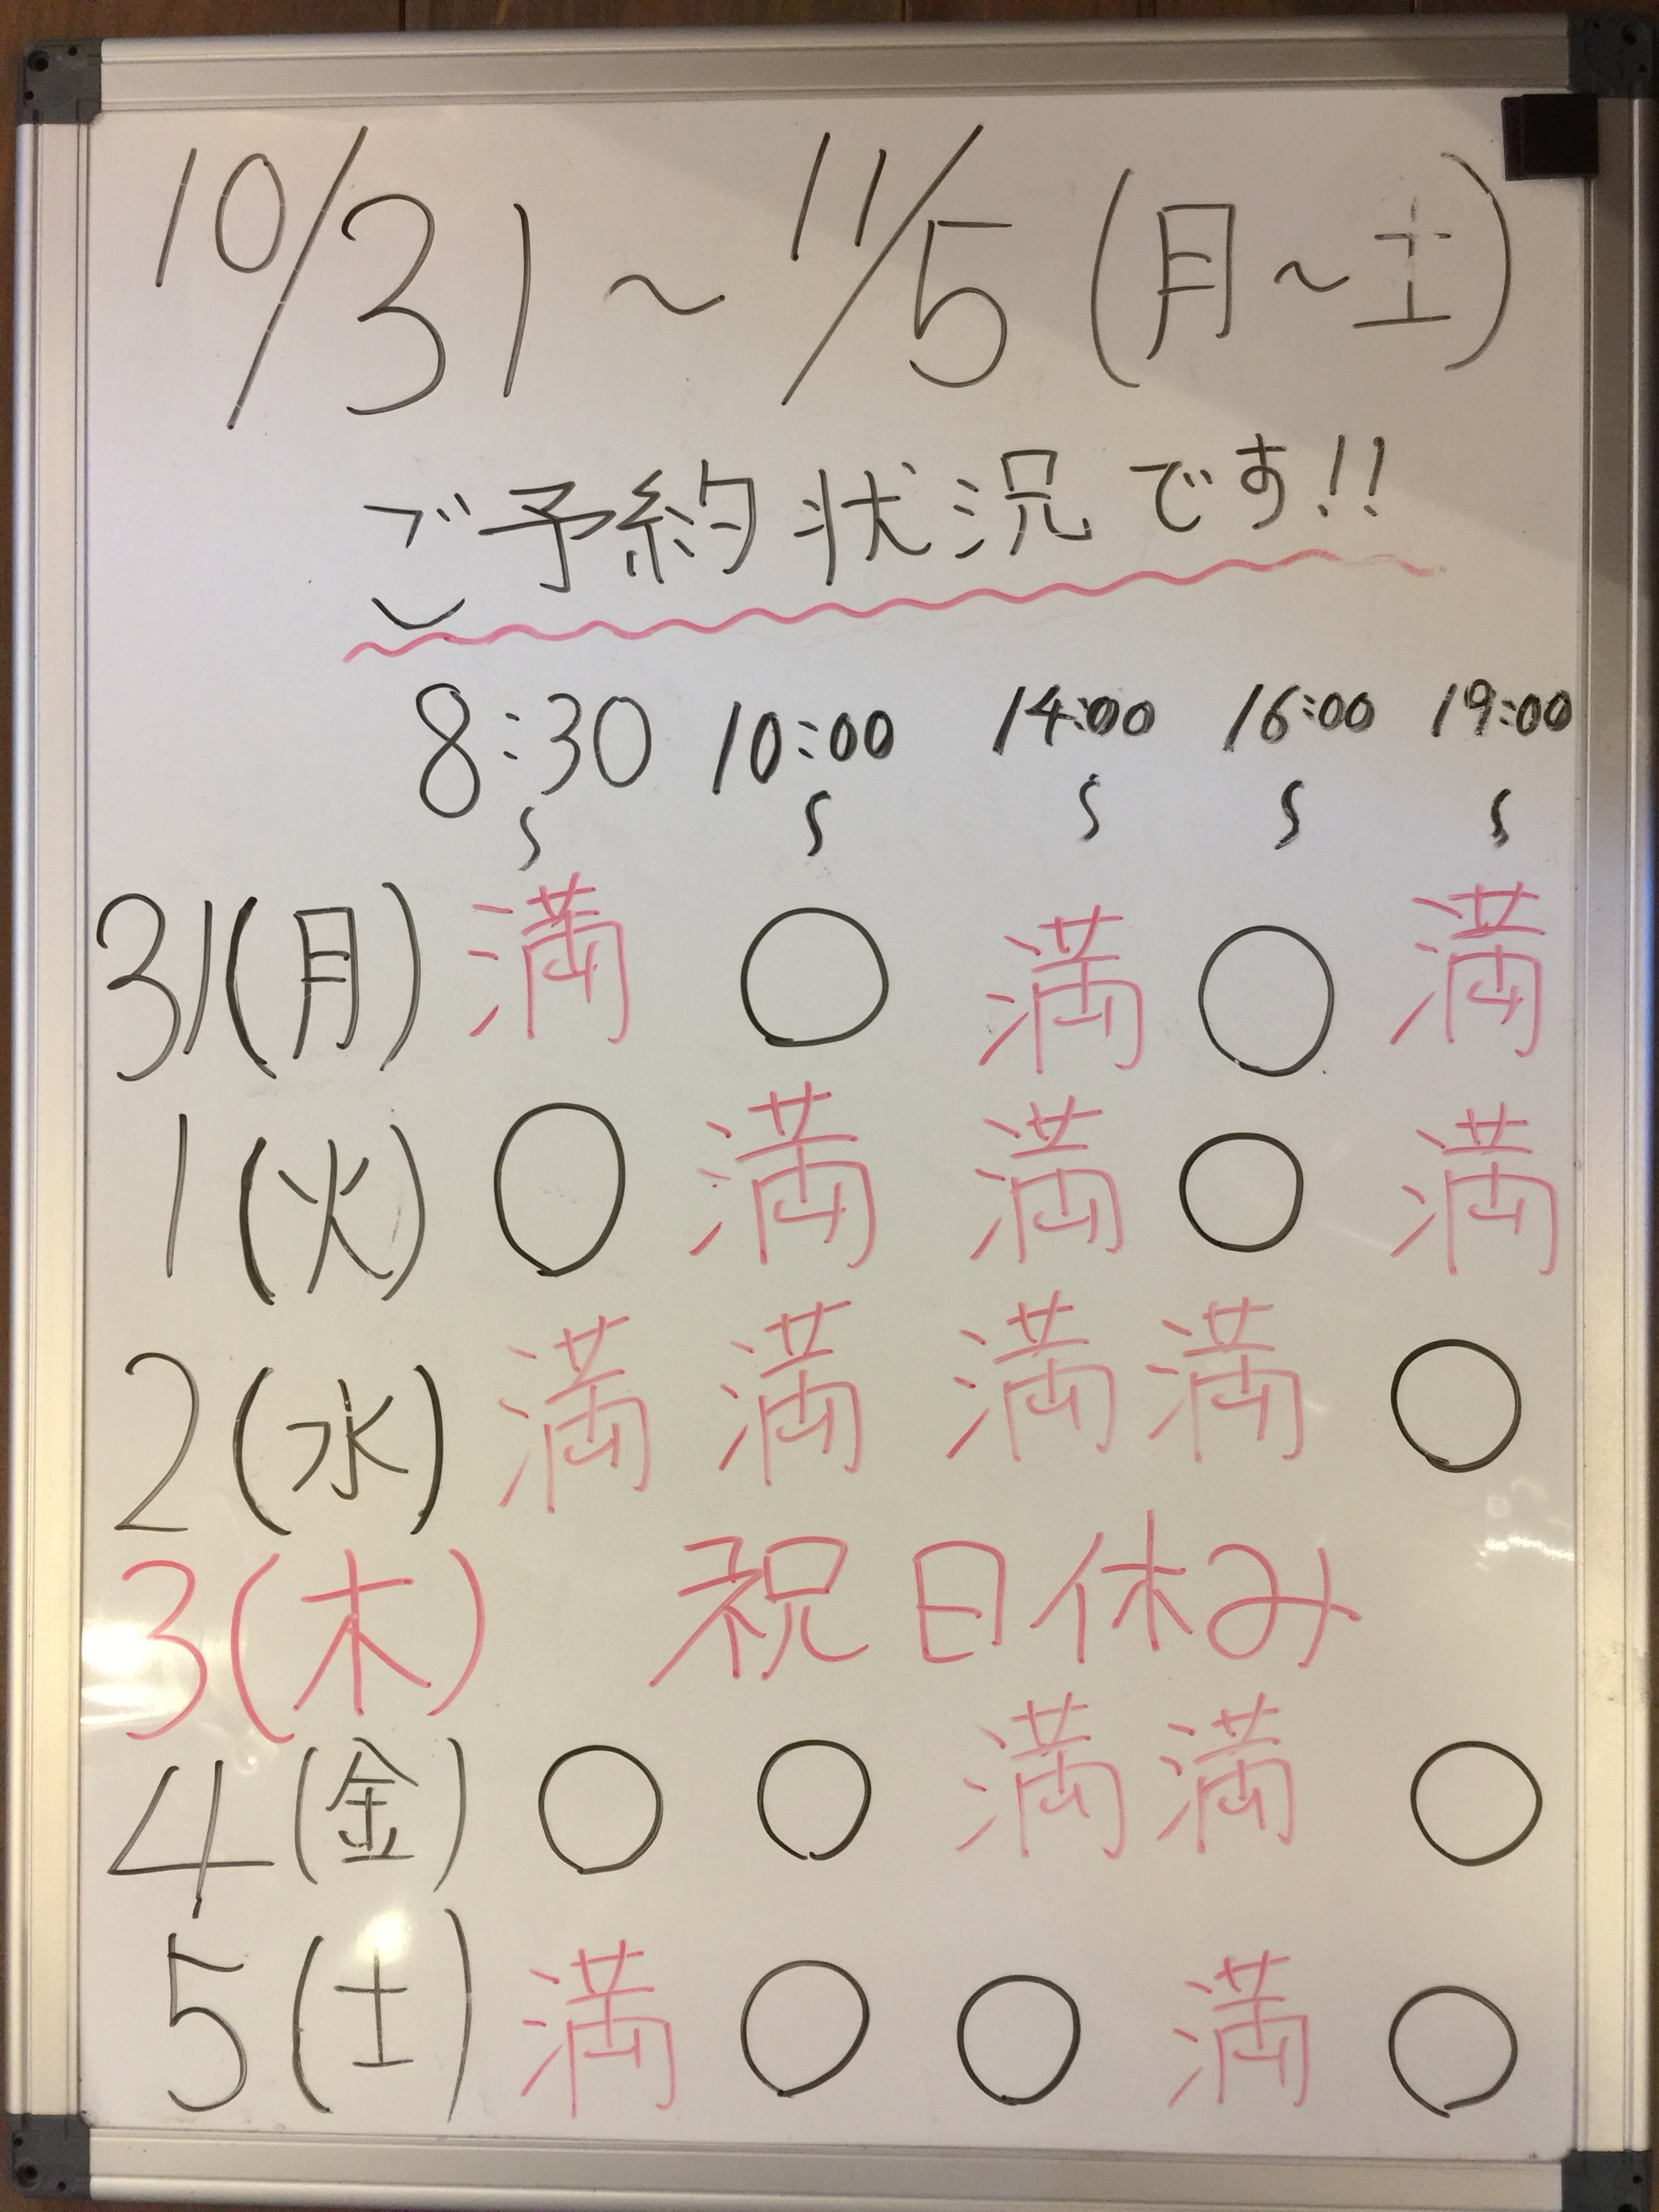 10/31～11/5(月～土)
ご予約状況です!!
8:30～ 10:00～ 14:00～ 16:00～ 19:00～
31(月) 満 ○ 満 ○ 満
1(火) ○ 満 満 ○ 満
2(水) 満 満 満 満 ○
3(木) 祝日休み
4(金) ○ ○ 満 満 ○
5(土) 満 ○ ○ 満 ○